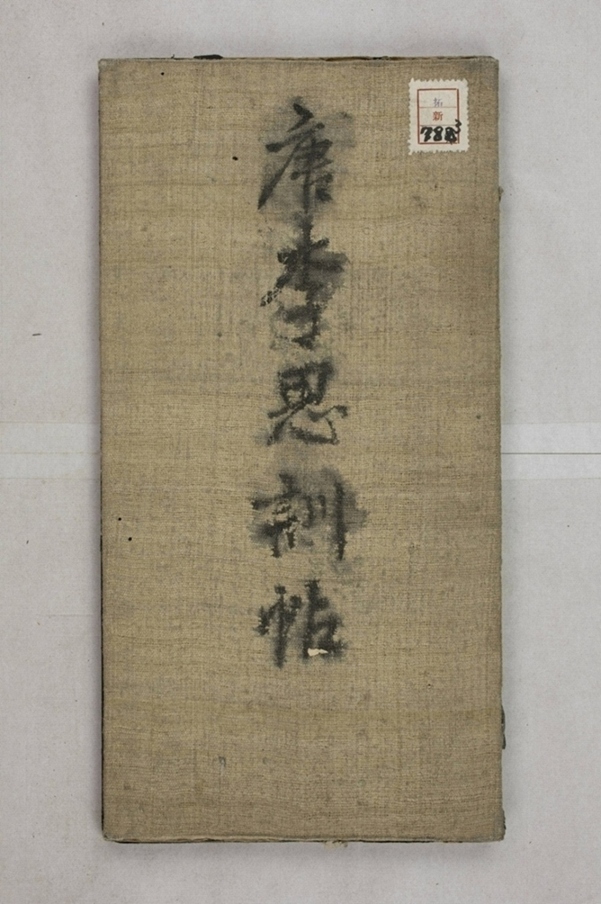 唐李思訓帖
拓
新
788